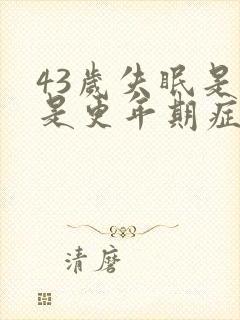 43歲失眠是
是更年期症
清麿